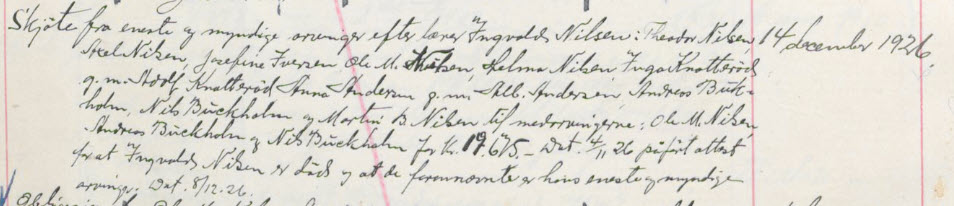 Skjøte fra eneste og myndige arvinger efter lærer Ingvald Nilsen: Theodor Nilsen, 14 december 1926.
Axel Nilsen, Josefine Iversen Ole M. Nilsen, Helma Nilsen, Inga Knatteröd
g. m. Adolf Knatteröd Anna Andersen g. m. Alb. Andersen, Andreas Buck-
holm, Nils Buckholm og Martin B. Nilsen til medarvingerne: Ole M. Nilsen,
Andreas Buckholm og Nils Buckholm for kr. 19.675.- Dat. 4/11 26 påført attest
for at Ingvald Nilsen er död og at de forannævnte er hans eneste og myndige
arvinger. Dat. 8/12.26.